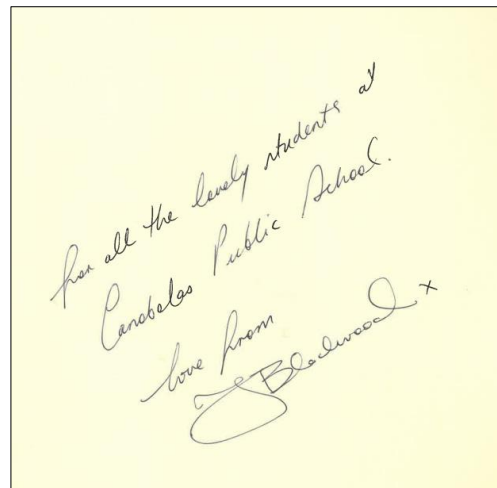 For all the lovely students at
Canobolas Public School.
love from
J Blackwood x